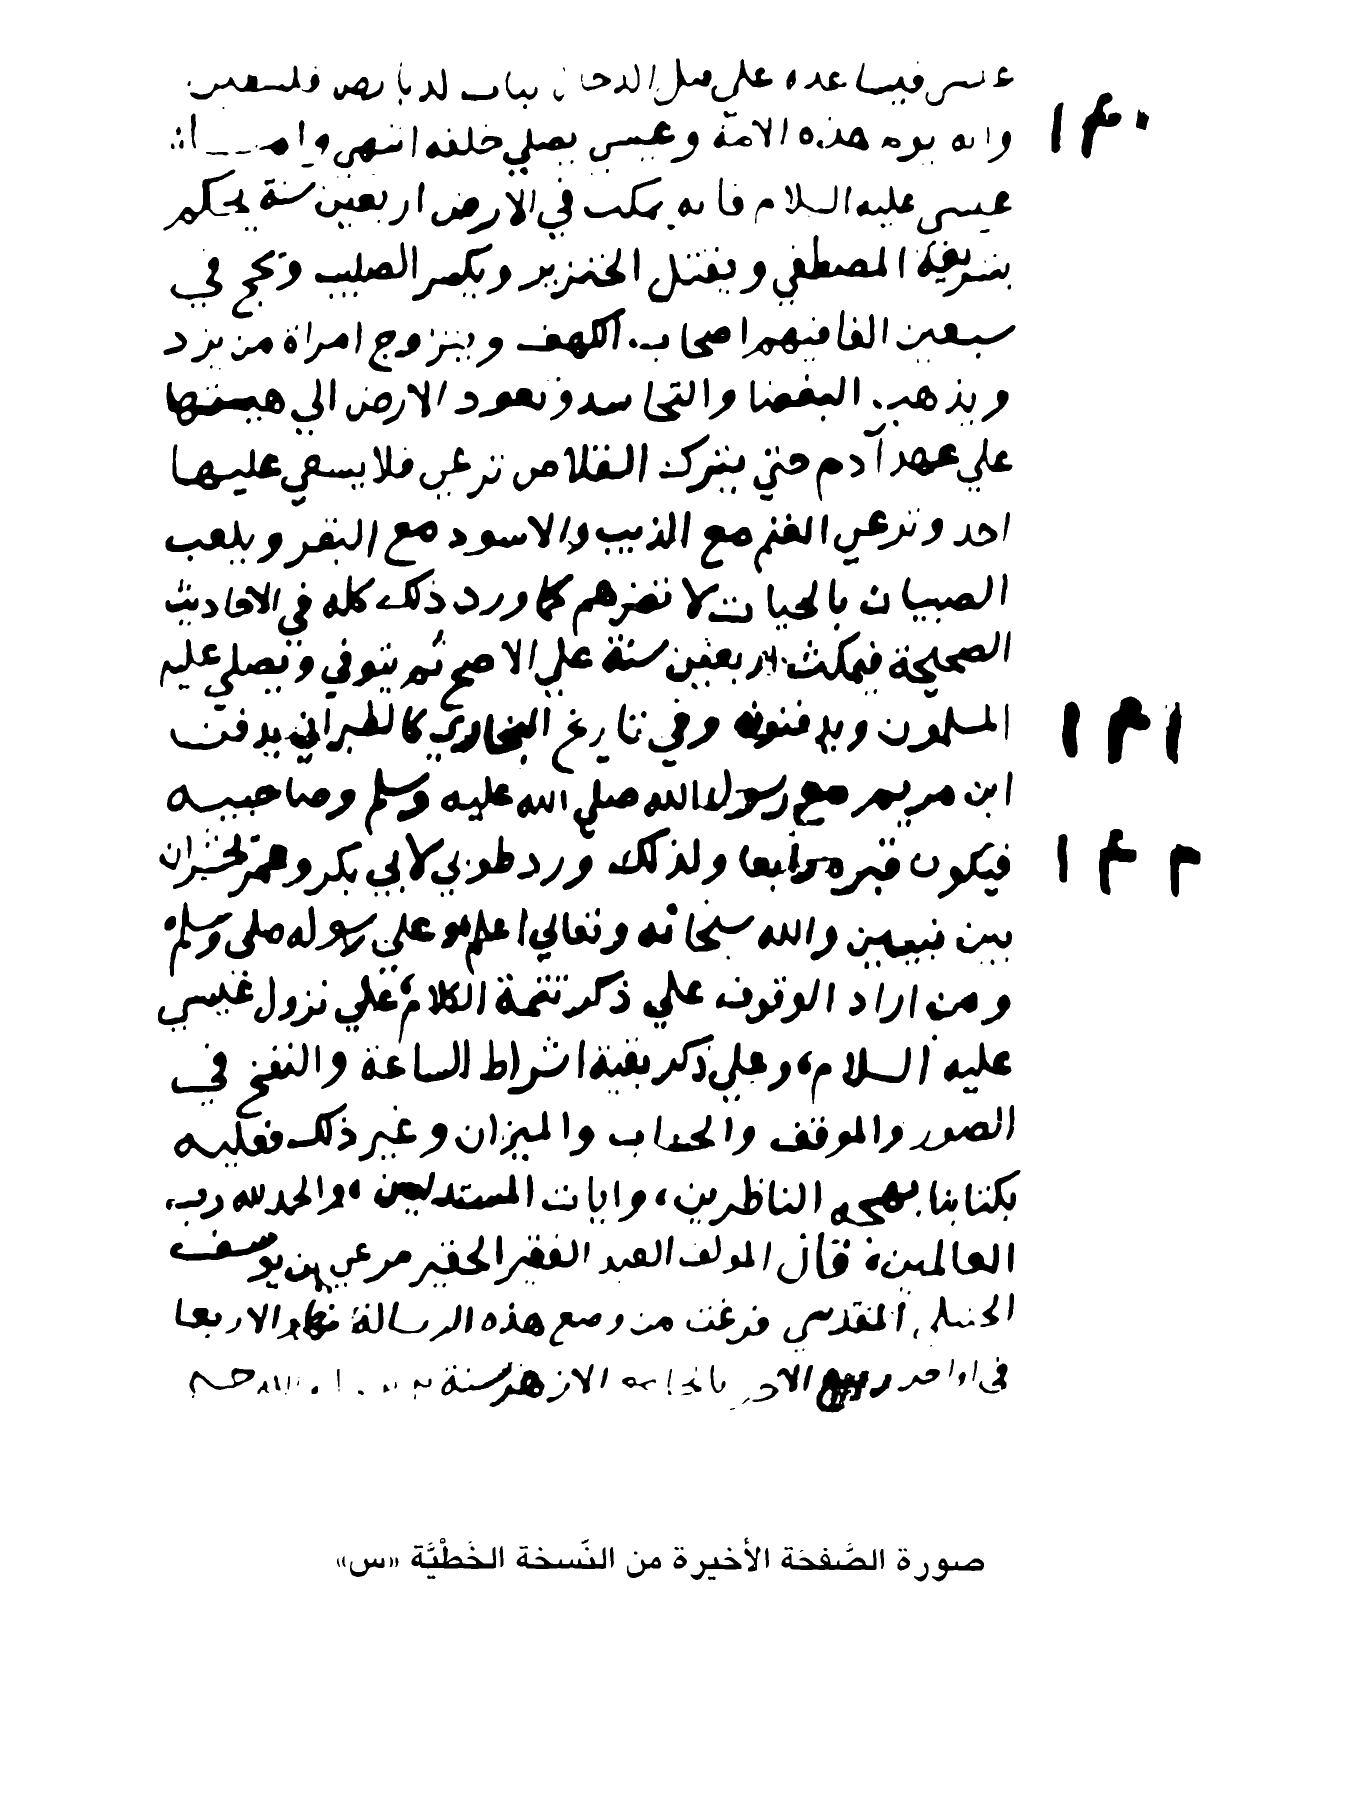 عيسى فيساعده علي قتل الدجال بباب لد بارض فلسطين
وانه يوم هذه الامة وعيسي يصلي خلفه انتهي واما
عيسي عليه السلام فانه يمكث في الارض اربعين سنة يحكم
بشريعة المصطفي ويقتل الخنزير ويكسر الصليب ويحج في
سبعين الفا فيهم اصحاب الكهف ويتزوج امراة من يزد
ويذهب البغضا والتحاسد وتعود الارض الي هيئتها
علي عهد آدم حتي يترك القلاص ترعي فلا يسعي عليها
احد وترعي الغنم مع الذيب والاسود مع البقر ويلعب
الصبيان بالحيات لا تضرهم كما ورد ذلك كله في الاحاديث
الصحيحة فيمكث اربعين سنة علي الاصح ثم يتوفي ويصلي عليه
المسلمون ويدفنونه وفي تاريخ البخاري كالطبراني يدفن
ابن مريم مع رسول الله صلي الله عليه وسلم وصاحبيه
فيكون قبره رابعا ولذلك ورد طوبي لابي بكر وعمر يحشران
بين نبيين والله سبحانه وتعالي اعلم علي رسوله صلى وسلم
ومن اراد الوقوف علي ذكر تتمة الكلام علي نزول عيسي
عليه السلام، وعلي ذكر بقية اشراط الساعة والنفخ في
الصور والموقف والحساب والميزان وغير ذلك فعليه
بكتابنا بهجه الناظرين، وايات المستدلين، والحمد لله رب
العالمين، قال المولف العبد الفقير الحقير مرعي بن يوسف
الحنبلي المقدسي فرغت من وضع هذه الرسالة نهار الاربعا
في اواخر ربيع الاخر بالجامع الازهر سنة
١٤٠
١٤١
١٤٢
صورة الصَّفحَة الأخيرة من النَّسخة الخَطْيَّة «س»